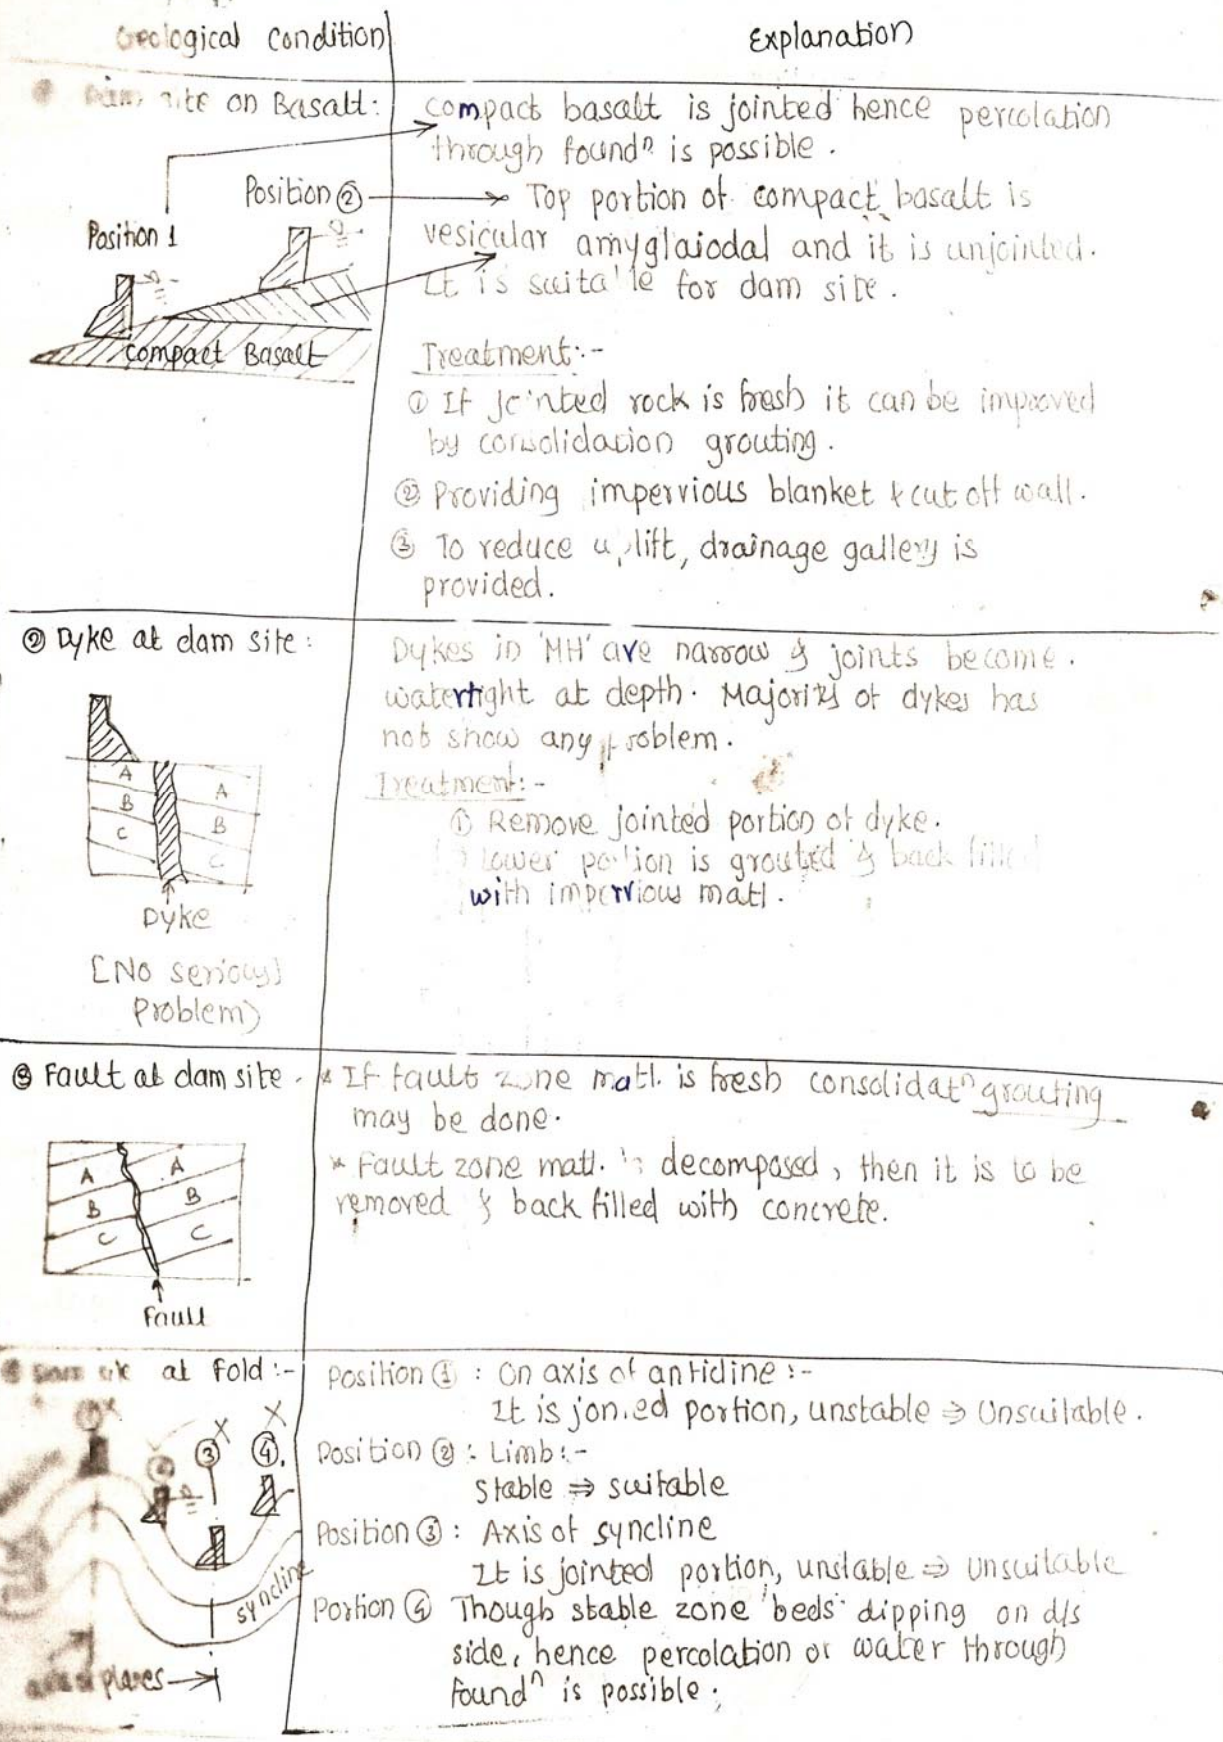 Geological Condition
Explanation
Dam site on Basalt:
compact basalt is jointed hence percolation
through foundⁿ is possible.
Position ②
Top portion of compact basalt is
Position 1
vesicular amyglaiodal and it is unjointed.
It is suitable for dam site.
compact Basalt
Treatment:-
① If jointed rock is fresh it can be improved
by consolidation grouting.
② Providing impervious blanket & cut off wall.
③ To reduce uplift, drainage gallery is
provided.
② Dyke at dam site:
Dykes in 'MH' are narrow & joints become.
watertight at depth. Majority of dykes has
not show any problem.
Treatment:-
① Remove jointed portion of dyke.
lower portion is grouted & back filled
with impervious matl.
A
B
C
A
B
C
Dyke
[No serious
Problem]
③ Fault at dam site.
* If fault zone matl. is fresh consolidatⁿ grouting
may be done.
* Fault zone matl. is decomposed, then it is to be
removed & back filled with concrete.
A
B
C
A
B
C
Fault
Dam site at Fold:-
Position ① : On axis of anticline :-
It is jonied portion, unstable ⇒ Unsuitable.
Position ② : Limb:-
stable ⇒ suitable
Position ③ : Axis of syncline
It is jointed portion, unstable ⇒ Unsuitable
Portion ④ Though stable zone 'beds' dipping on d/s
side, hence percolation or water through
foundⁿ is possible.
X
X
②
③
④
syncline
planes